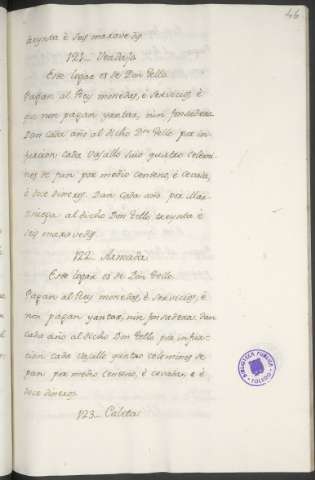 46
treynta è seis maravedis
121_ Verdeja
Este logar es de Don Tello
Pagan al Rey monedas, è servicios, è
que non pagan yantar, nin fonsadera
Dan cada año al dicho Dn Tello por in-
furcion cada Vasallo suio quatro celemi-
nes de pan por medio centeno, è cevada,
è doce dineros. Dan cada año por Mar-
ziniega al dicho Don Tello treynta è
seis maravedis
122_ Armada
Este logar es de Don Tello
Pagan al Rey monedas, è servicios, è
non pagan yantar, nin fonsadera. dan
cada año al dicho Don Tello por infur-
cion cada Vasallo quatro celemines de
pan por medio centeno, è cevada, è
doce dineros
123_ Caleta
BIBLIOTECA PUBLICA
TOLEDO